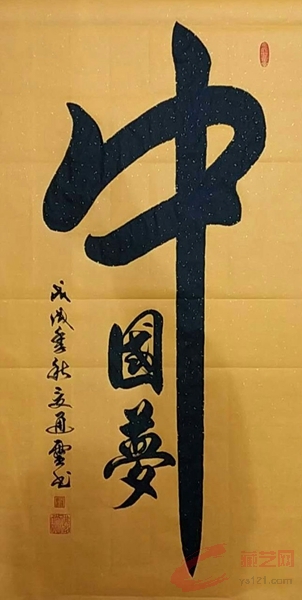 中國夢
戊戌季秋文通雲書
藏艺网
ys121.com